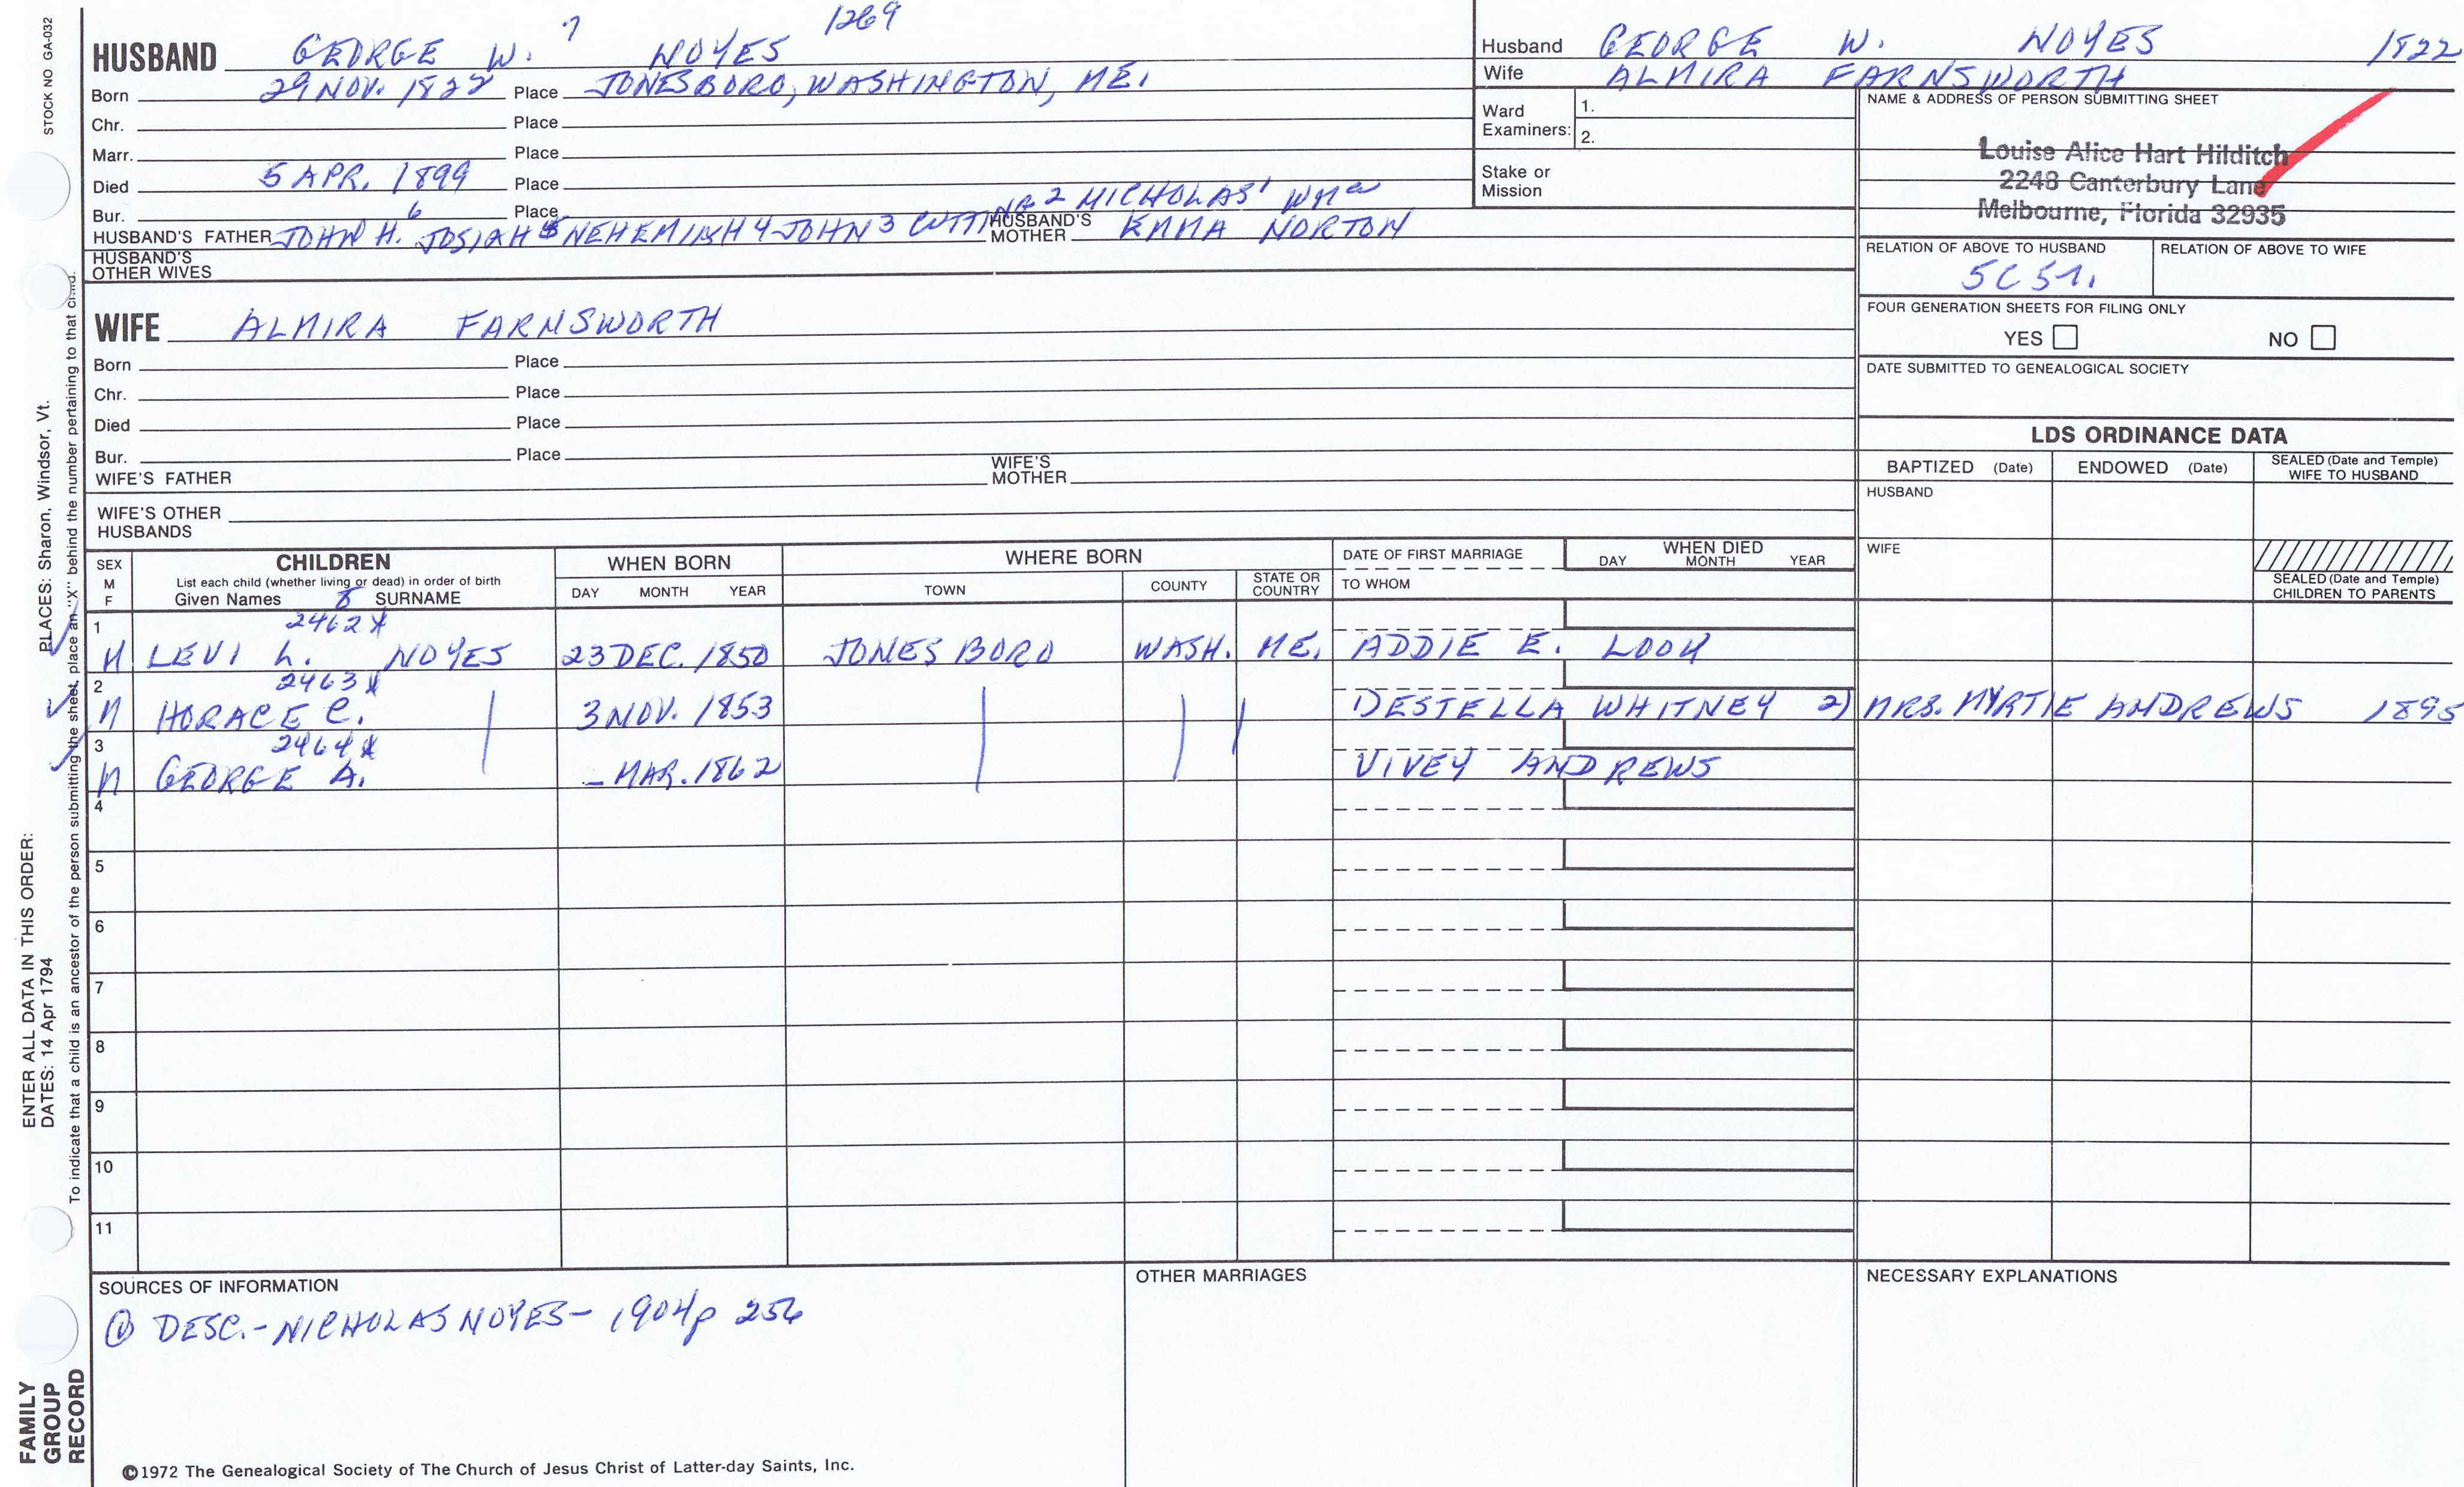 STOCK NO GA-032
HUSBAND GEORGE W. 7 NOYES 1269
Born 29 NOV. 1822 Place JONESBORO, WASHINGTON, ME.
Chr. Place
Marr. Place
Died 5 APR. 1899 Place
Bur. Place
HUSBAND'S FATHER JOHN H. 6 JOSIAH 5 NEHEMIAH 4 JOHN 3 CUTTING 2 NICHOLAS' WM HUSBAND'S MOTHER EMMA NORTON
HUSBAND'S OTHER WIVES
Husband GEORGE W. NOYES 1822
Wife ALMIRA FARNSWORTH
Ward Examiners: 1.
2.
Stake or Mission
NAME & ADDRESS OF PERSON SUBMITTING SHEET
Louise Alice Hart Hilditch
2248 Canterbury Lane
Melbourne, Florida 32935
RELATION OF ABOVE TO HUSBAND RELATION OF ABOVE TO WIFE
5C51.
FOUR GENERATION SHEETS FOR FILING ONLY
YES NO
DATE SUBMITTED TO GENEALOGICAL SOCIETY
WIFE ALMIRA FARNSWORTH
Born Place
Chr. Place
Died Place
Bur. Place
WIFE'S FATHER WIFE'S MOTHER
WIFE'S OTHER HUSBANDS
LDS ORDINANCE DATA
BAPTIZED (Date) ENDOWED (Date) SEALED (Date and Temple) WIFE TO HUSBAND
HUSBAND
WIFE
SEALED (Date and Temple) CHILDREN TO PARENTS
SEX M F CHILDREN WHEN BORN WHERE BORN DATE OF FIRST MARRIAGE WHEN DIED
List each child (whether living or dead) in order of birth
Given Names 8 SURNAME DAY MONTH YEAR TOWN COUNTY STATE OR COUNTRY TO WHOM DAY MONTH YEAR
1 2462x
M LEVI L. NOYES 23 DEC. 1850 JONESBORO WASH. ME. ADDIE E. LOOK
2 2463x
M HORACE C. 3 NOV. 1853 DESTELLA WHITNEY 2) MRS. MYRTIE ANDREWS 1895
3 2464x
M GEORGE A. - MAR. 1862 VIVEY ANDREWS
4
5
6
7
8
9
10
11
SOURCES OF INFORMATION
① DESC.-NICHOLAS NOYES- 1904 p 256
OTHER MARRIAGES
NECESSARY EXPLANATIONS
©1972 The Genealogical Society of The Church of Jesus Christ of Latter-day Saints, Inc.
FAMILY GROUP RECORD
ENTER ALL DATA IN THIS ORDER:
DATES: 14 Apr 1794
PLACES: Sharon, Windsor, Vt.
To indicate that a child is an ancestor of the person submitting the sheet, place an "X" behind the number pertaining to that child.